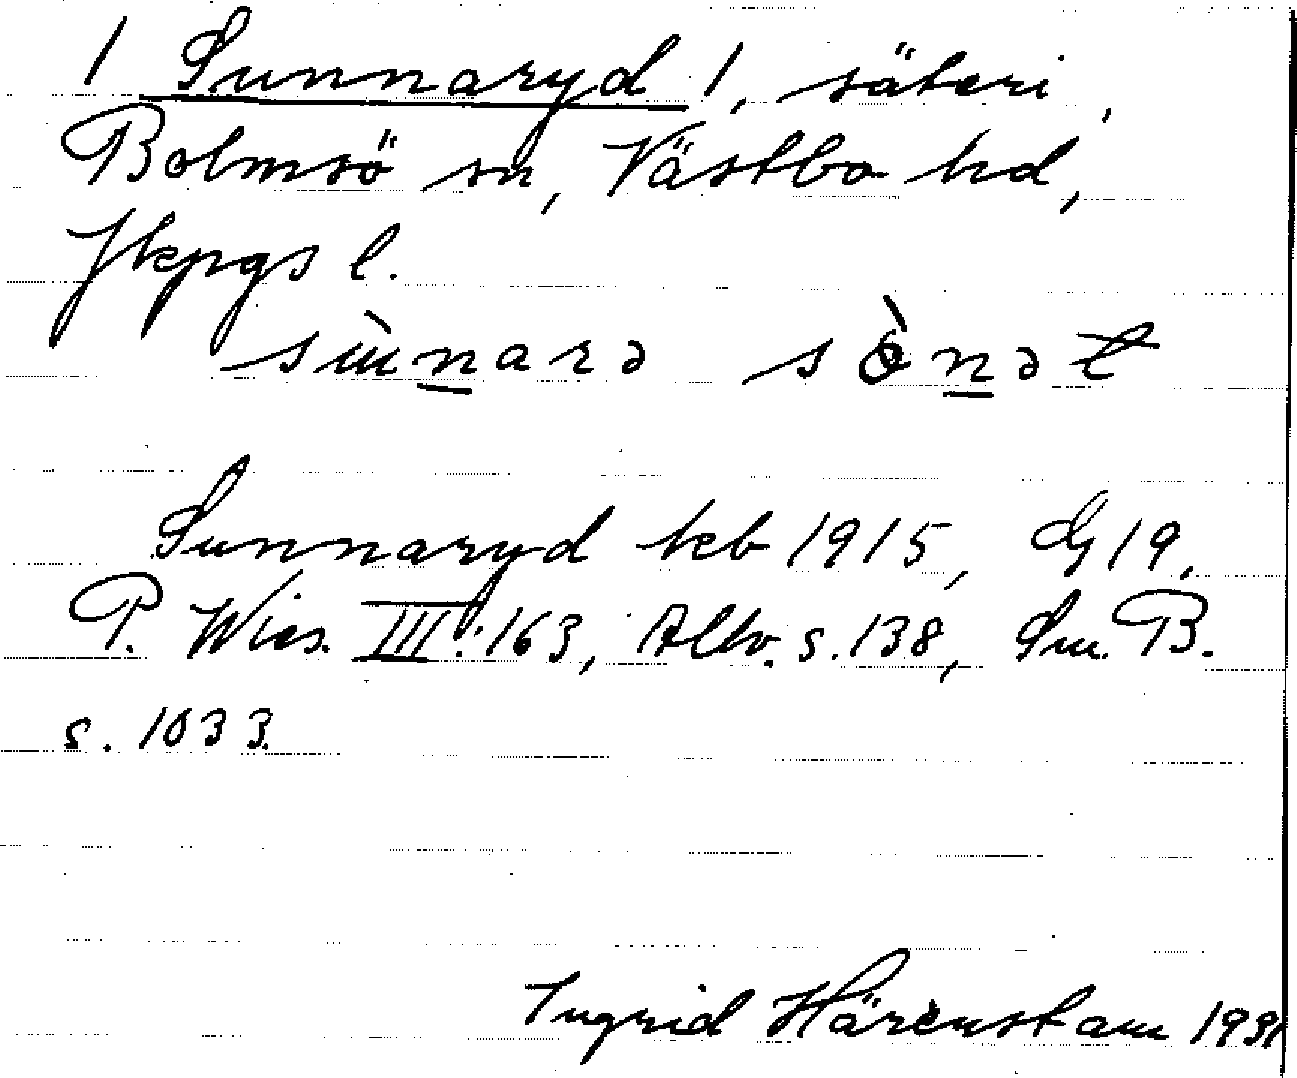 / Sunnaryd /, säteri,
Bolmsö sn, Västbo hd,
Jkpgs l.
Sunnaryd keb 1915, G 19,
P. Wies. III:163, Allv. s. 138, Sm. B.
s. 1033.
Ingrid Härenstam 1931